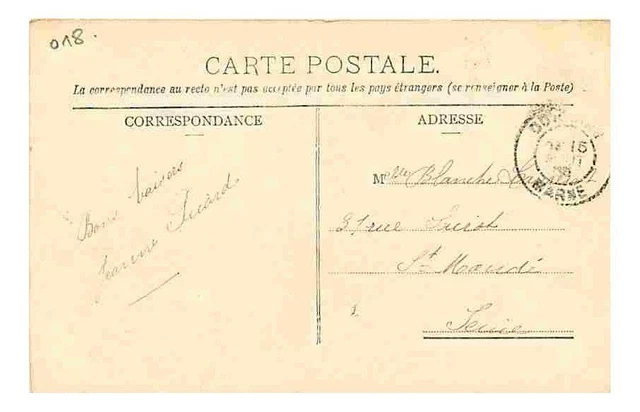 018.
CARTE POSTALE.
La correspondance au recto n'est pas acceptée par tous les pays étrangers (se renseigner à la Poste)
CORRESPONDANCE
ADRESSE
15
MARNE
Mlle Blanche
Bons baisers
Jeanne Picard
31 rue
St Mandé
Seine